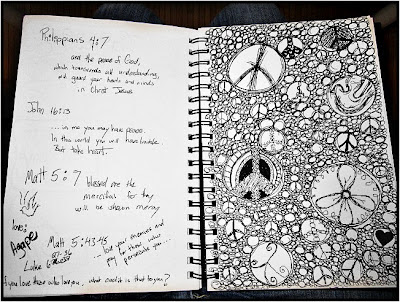 Philippians 4:7
and the peace of God,
which transcends all understanding,
will guard your hearts and minds
in Christ Jesus
John 16:33
... in me you may have peace.
In this world you will have trouble.
But take heart.
Matt 5:7 blessed are the
merciful for they
will be shown mercy
love:
Agape
Matt 5:43-45
... love your enemies and
pray for those who
persecute you...
Luke 6:27-36
If you love those who love you, what credit is that to you?